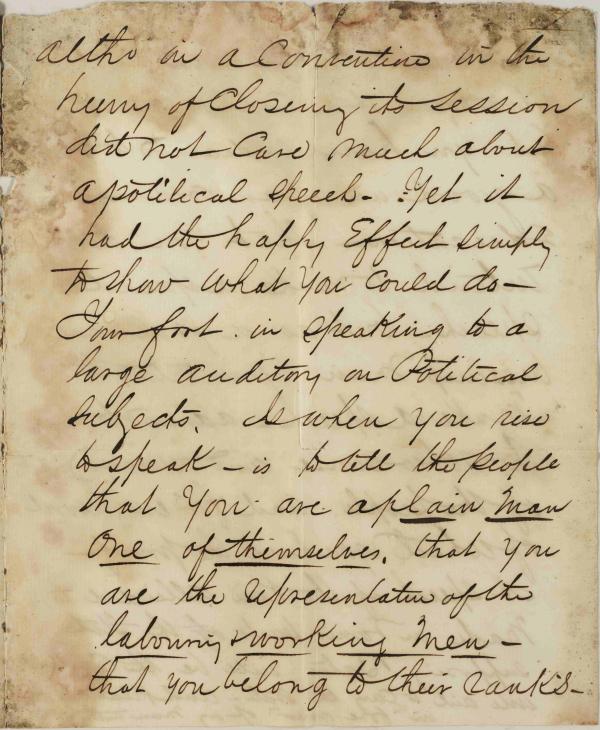 altho in a Convention in the
hurry of Closing its session
did not Care much about
a political speech - Yet it
had the happy Effect simply
to show what You Could do -
Your fort . in speaking to a
large auditory on Political
subjects. Is when you rise
to speak - is to tell the people
that You are a plain Man
One of themselves. that You
are the representative of the
labouring & working Men -
that you belong to their ranks -